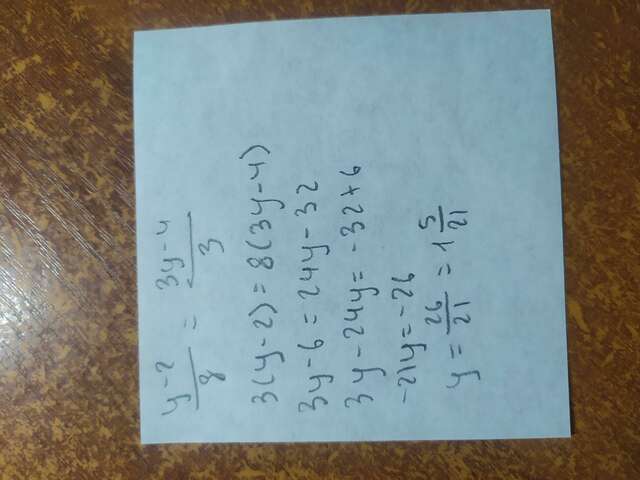 y-2/8 = 3y-4/3
3(y-2)=8(3y-4)
3y-6=24y-32
3y-24y=-32+6
-21y=-26
y=26/21=1 5/21